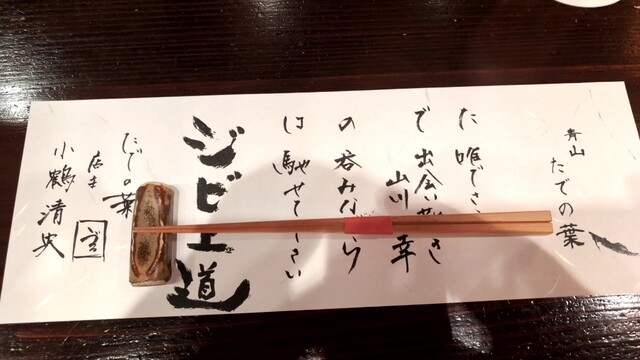 青山
たでの葉
た唯でさ
で出会
山川 幸
の呑みながら
は馳せて下さい
ジビエ道
たでの葉
店主
小鶴 清史